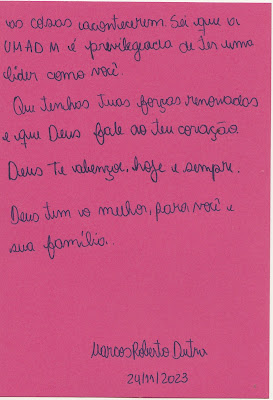 as coisas acontecerem. Sei que a
UMADM é privilegiada de ter uma
líder como você.
Que tenhas tuas forças renovadas
e que Deus fale ao teu coração
Deus te abençoe, hoje e sempre.
Deus tem o melhor, para você e
sua família.
Marcos Roberto Dutra
24/11/2023